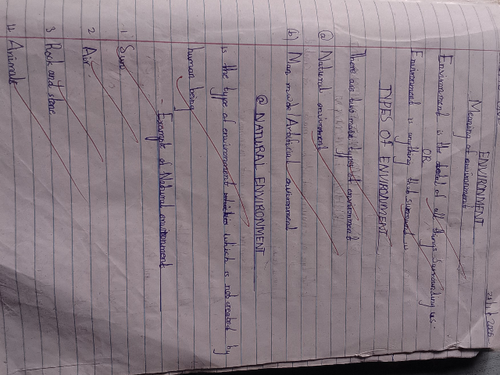 ENVIRONMENT
Meaning of environment
Environment is the total of all things surrounding us.
OR
Environment is anything that surround us
TYPES OF ENVIRONMENT
There are two main types of environment
(a) Natural environment
(b) Man made/Artificial environment
(a) NATURAL ENVIRONMENT
is the type of environment which is not created by
human being
- Example of Natural environment
1 Sun
2 Air
3 Rock and stone
4 Animals